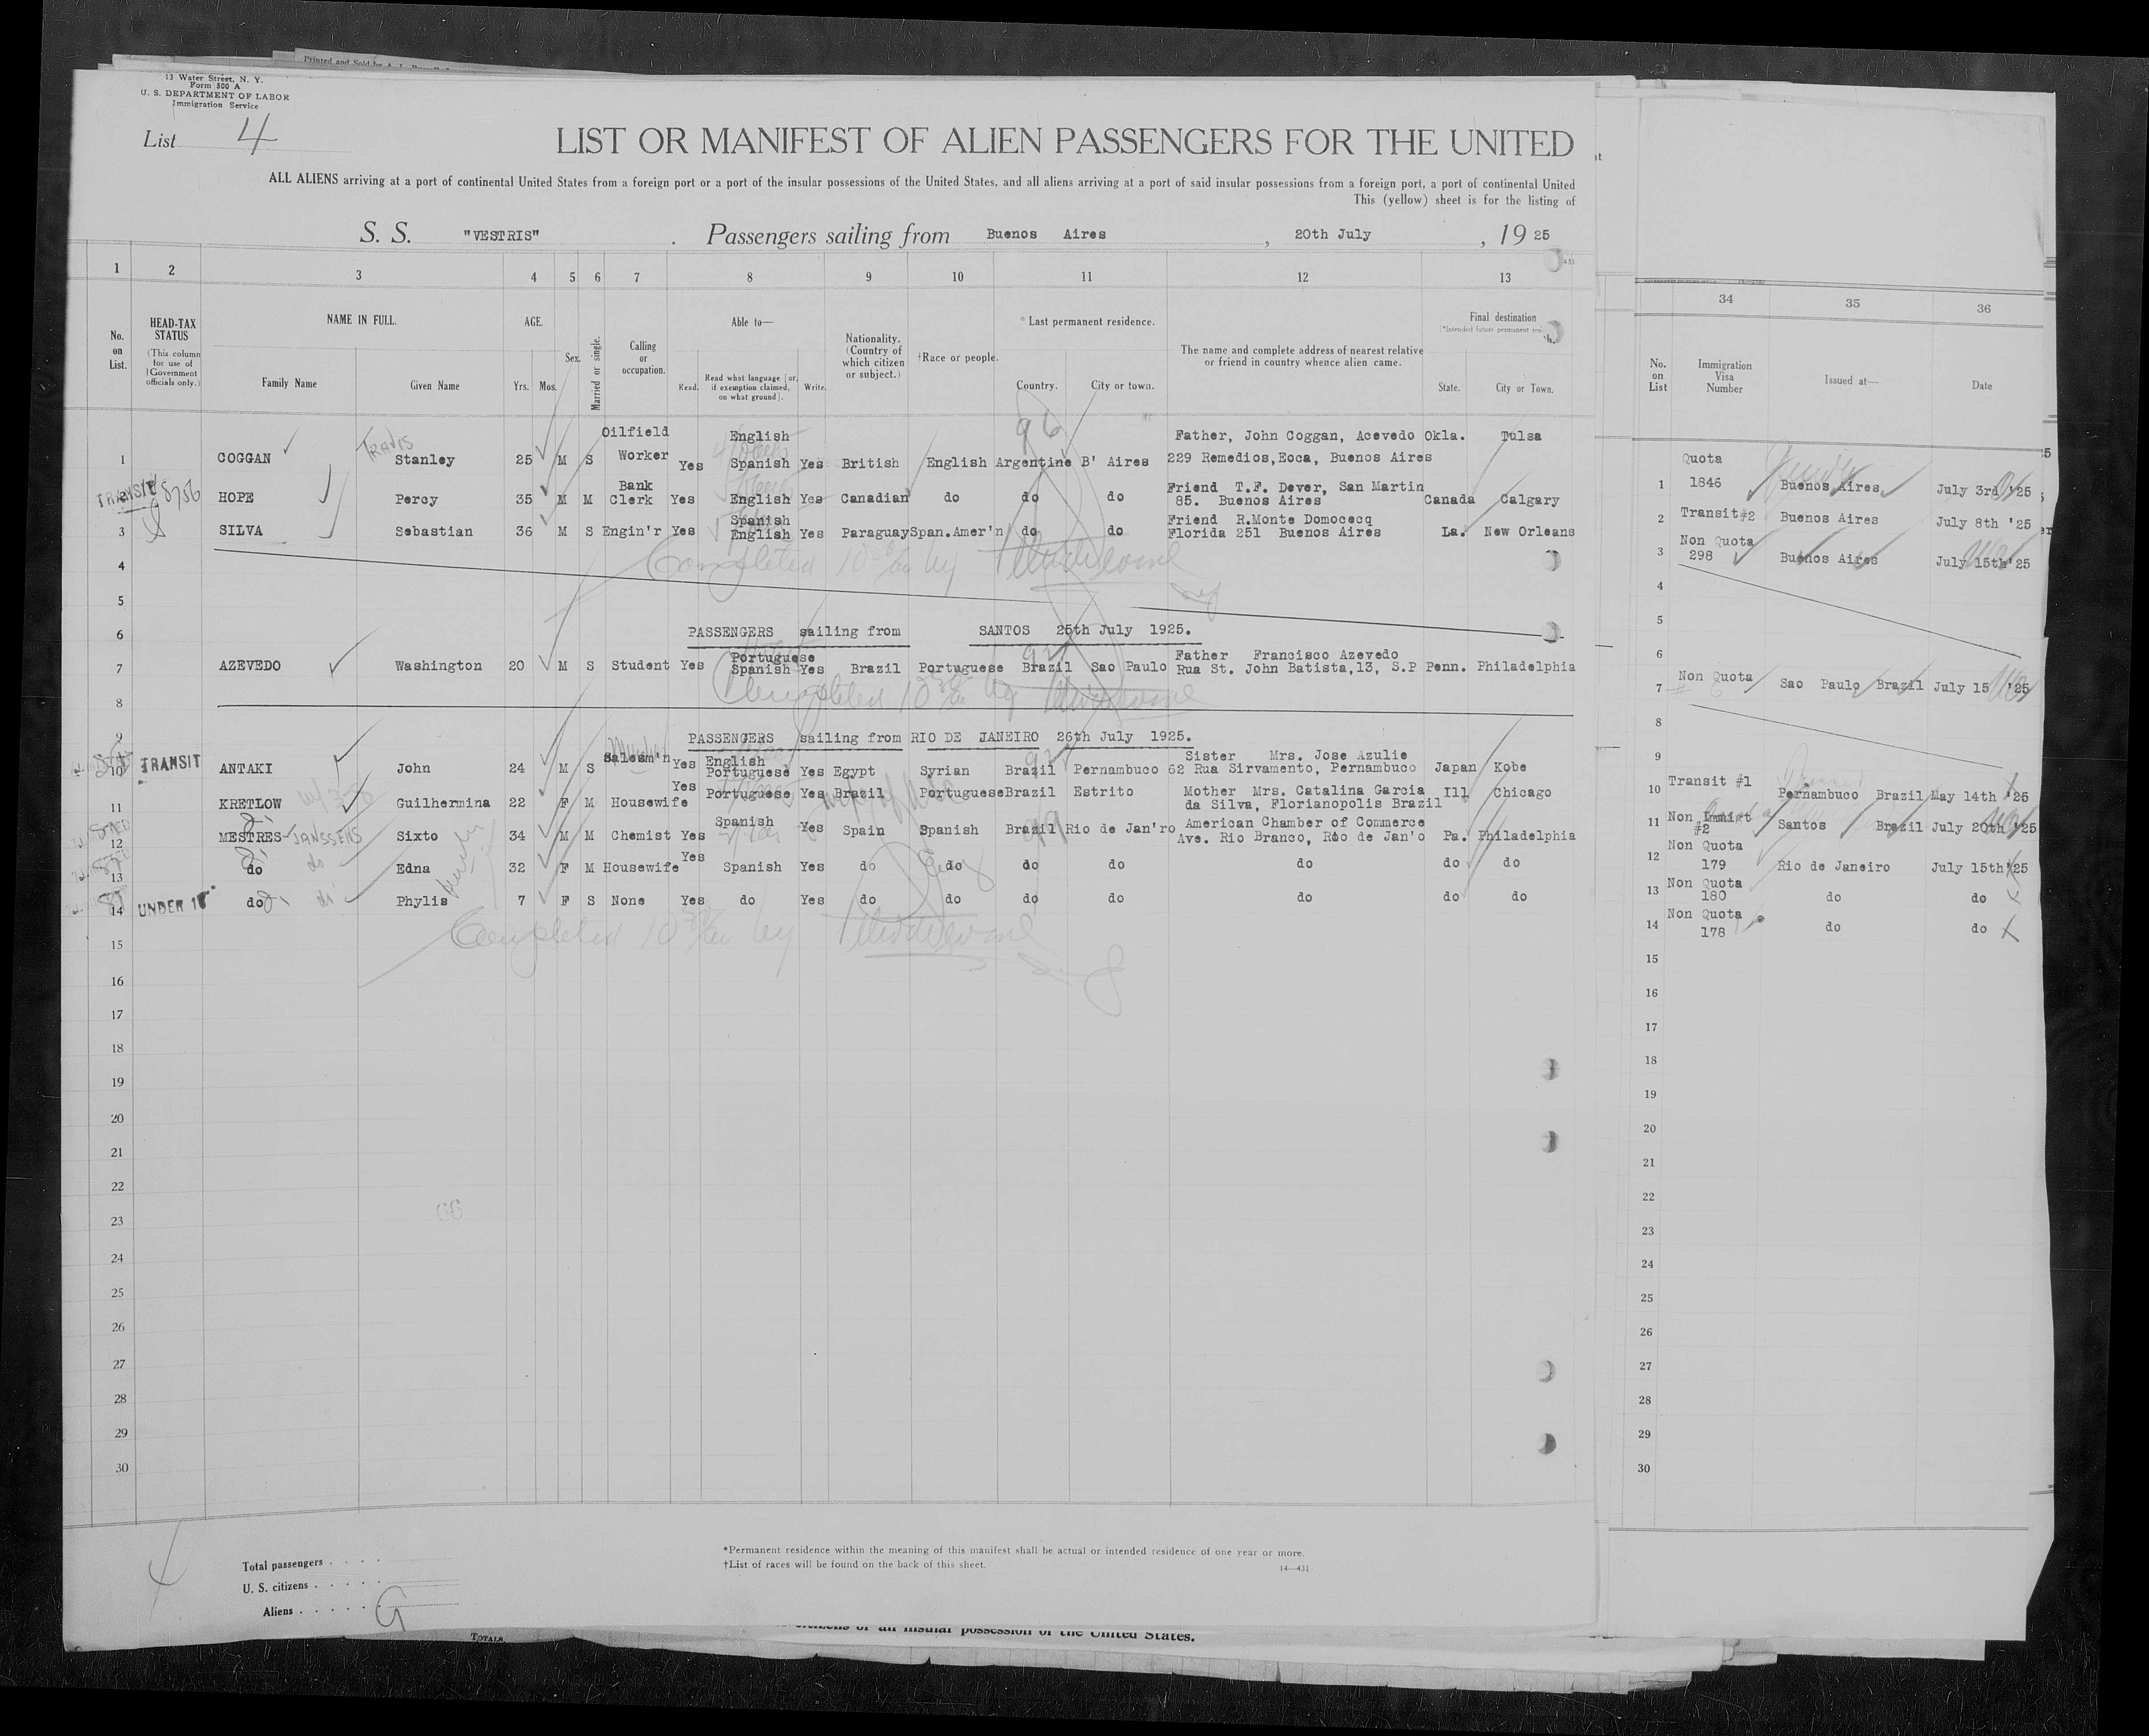 Printed and Sold by A. L.
13 Water Street, N. Y.
Form 500 A
U. S. DEPARTMENT OF LABOR
Immigration Service
List 4
LIST OR MANIFEST OF ALIEN PASSENGERS FOR THE UNITED
ALL ALIENS arriving at a port of continental United States from a foreign port or a port of the insular possessions of the United States, and all aliens arriving at a port of said insular possessions from a foreign port, a port of continental United
This (yellow) sheet is for the listing of
S. S. "VESTRIS" . Passengers sailing from Buenos Aires , 20th July , 19 25
1 2 3 4 5 6 7 8 9 10 11 12 13
No. on List.
HEAD-TAX STATUS
(This column for use of Government officials only.)
NAME IN FULL.
Family Name Given Name
AGE.
Yrs. Mos.
Sex.
Married or single.
Calling or occupation.
Able to—
Read. Read what language [or, if exemption claimed, on what ground]. Write.
Nationality. (Country of which citizen or subject.)
†Race or people.
*Last permanent residence.
Country. City or town.
The name and complete address of nearest relative or friend in country whence alien came.
Final destination
State. City or Town.
34 35 36
No. on List
Immigration Visa Number
Issued at—
Date
TRAVIS
1 COGGAN Stanley 25 M S Oilfield Worker Yes English Spanish Yes British English Argentine B' Aires Father, John Coggan, Acevedo 229 Remedios,Eoca, Buenos Aires Okla. Tulsa
TRANSIT 8756
2 HOPE Percy 35 M M Bank Clerk Yes English Yes Canadian do do do Friend T.F. Dever, San Martin 85. Buenos Aires Canada Calgary
3 SILVA Sebastian 36 M S Engin'r Yes Spanish English Yes Paraguay Span.Amer'n do do Friend R.Monte Domocecq Florida 251 Buenos Aires La. New Orleans
4 Completed 10 by
5
6 PASSENGERS sailing from SANTOS 25th July 1925.
7 AZEVEDO Washington 20 M S Student Yes Portuguese Spanish Yes Brazil Portuguese Brazil Sao Paulo Father Francisco Azevedo Rua St. John Batista,13, S.P Penn. Philadelphia
8 Completed 10 by
9 PASSENGERS sailing from RIO DE JANEIRO 26th July 1925.
10 TRANSIT ANTAKI John 24 M S Salesm'n Yes English Portuguese Yes Egypt Syrian Brazil Pernambuco Sister Mrs. Jose Azulie 62 Rua Sirvamento, Pernambuco Japan Kobe
11 KRETLOW Guilhermina 22 F M Housewife Yes Portuguese Yes Brazil Portuguese Brazil Estrito Mother Mrs. Catalina Garcia da Silva, Florianopolis Brazil Ill Chicago
12 MESTRES-JANSSENS Sixto 34 M M Chemist Yes Spanish Yes Spain Spanish Brazil Rio de Jan'ro American Chamber of Commerce Ave. Rio Branco, Rio de Jan'o Pa. Philadelphia
13 do do Edna 32 F M Housewife Yes Spanish Yes do do do do do do do
14 UNDER 1 do do Phylis 7 F S None Yes do Yes do do do do do do do
Completed 10 by
15
16
17
18
19
20
21
22
23
24
25
26
27
28
29
30
1 Quota 1846 Buenos Aires July 3rd '25
2 Transit#2 Buenos Aires July 8th '25
3 Non Quota 298 Buenos Aires July 15th'25
4
5
6
7 Non Quota Sao Paulo Brazil July 15 '25
8
9
10 Transit #1 Pernambuco Brazil May 14th '25
11 Non Immigt #2 Santos Brazil July 20th '25
12 Non Quota 179 Rio de Janeiro July 15th'25
13 Non Quota 180 do do
14 Non Quota 178 do do
15
16
17
18
19
20
21
22
23
24
25
26
27
28
29
30
Total passengers . . . .
U. S. citizens . . . . .
Aliens . . . . . .
*Permanent residence within the meaning of this manifest shall be actual or intended residence of one year or more.
†List of races will be found on the back of this sheet.
14—431
TOTALS
citizens of an insular possession of the United States.